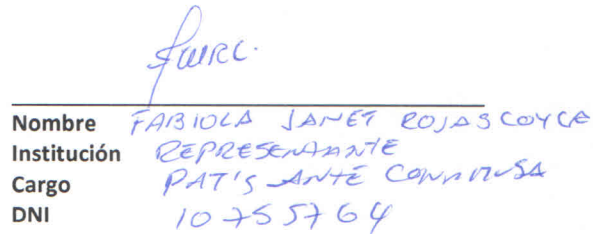 Nombre FABIOLA JANET ROJAS COYCA
Institución REPRESENTANTE
Cargo PAT'S ANTE CONAMUSA
DNI 10755764